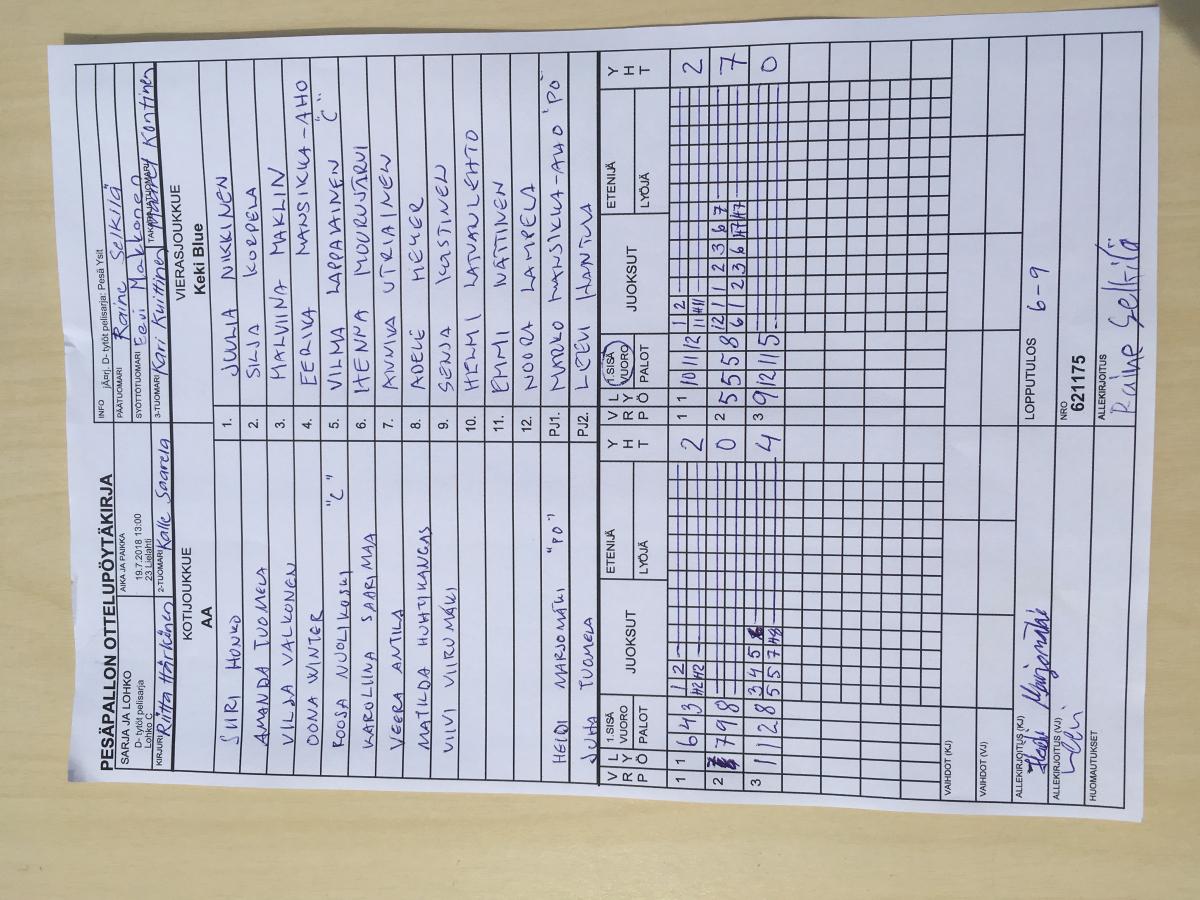 PESÄPALLON OTTELUPÖYTÄKIRJA
SARJA JA LOHKO
D- tytöt pelisarja
Lohko C
AIKA JA PAIKKA
19.7.2018 13:00
23 Lielahti
INFO jÄ¤rj. D- tytöt pelisarja: Pesä Ysit
PÄÄTUOMARI Raine Selkilä
SYÖTTÖTUOMARI Eevi Makkonen
KIRJURI Riitta Härkönen
2-TUOMARI Kalle Saarela
3-TUOMARI Kari Kuittinen
TAKARAJATUOMARI Kontinen
KOTIJOUKKUE
AA
VIERASJOUKKUE
Keki Blue
SURI HONKO 1. JULIA NIKKINEN
AMANDA TUOMELA 2. SILJA KORPELA
VILJA VALKONEN 3. MALVIINA MAKLIN
OONA WINTER 4. EERIKA MANSIKKA-AHO
ROOSA NUOLIKOSKI "C" 5. VILMA LAPPAVAINEN "C"
KAROLIINA SAARIMAA 6. HENNA MOURUJÄRVI
VEERA ANTILA 7. ANNIKA UTRIAINEN
MATILDA HUHTIKANGAS 8. ADELE HEYER
VIIVI VIIRUMÄKI 9. SENJA KOSTINEN
10. HELMI LATVALEHTO
11. EMMI NÄTTINEN
12. NOORA LAMPELA
HEIDI MARJOMÄKI "PO" PJ1. MARKO MANSIKKA-AHO "PO"
JUHA TUOMELA PJ2. LEEVI HANTULA
VRP LYÖ 1.SISÄ VUORO PALOT JUOKSUT ETENIJÄ LYÖJÄ YHT
VRP LYÖ 1.SISÄ VUORO PALOT JUOKSUT ETENIJÄ LYÖJÄ YHT
1 1 6 4 3 1 2 2
H2 H2
1 1 10 11 12 1 2 2
11 H11
2 7 9 8 0
2 5 5 5 8 12 1 1 2 3 6 7 7
6 1 2 3 6 H7 H7
3 1 11 2 8 3 4 5 4
5 5 7 H8
3 9 12 11 5 0
VAIHDOT (KJ)
VAIHDOT (VJ)
ALLEKIRJOITUS (KJ) Heidi Marjomäki
LOPPUTULOS 6-9
ALLEKIRJOITUS (VJ)
NRO
621175
HUOMAUTUKSET
ALLEKIRJOITUS
Raine Selkilä